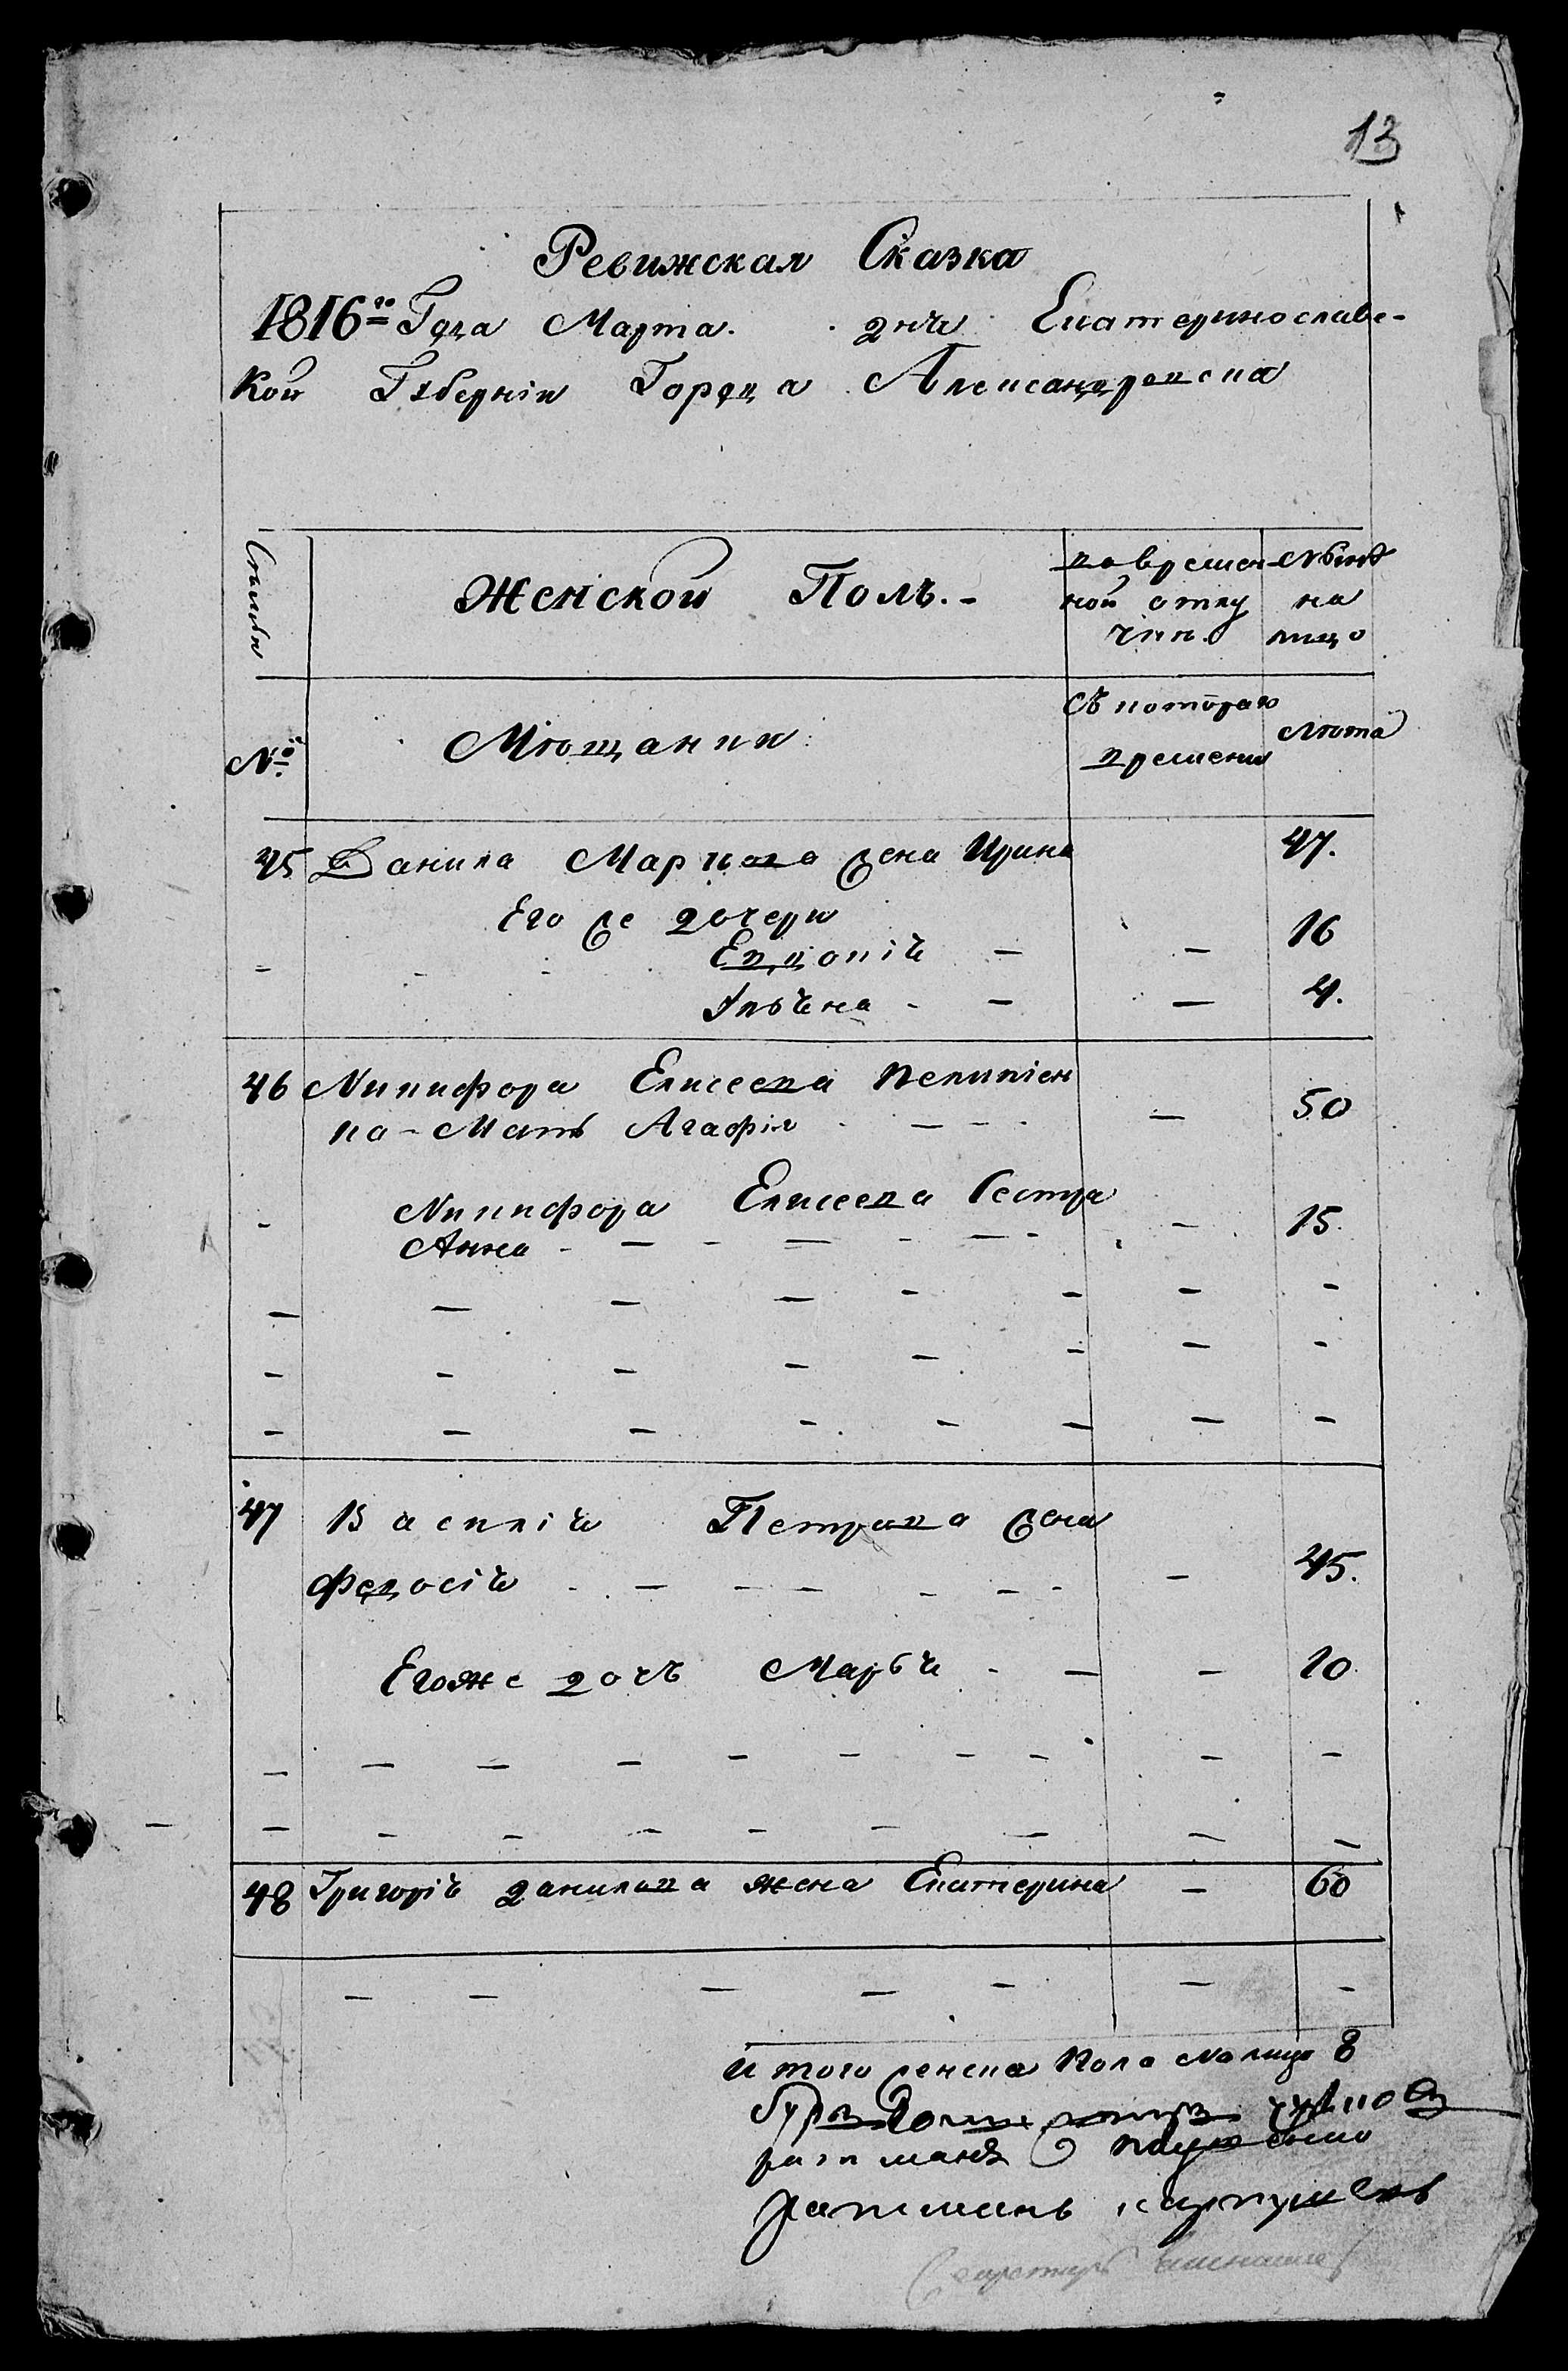 13
Ревижская Сказка
1816го Года Марта. дня Екатеринославс-
кой Губерніи Города Александровска
Семьи
Женской Полъ.-
во времен
ной отлу
чки.
Нынѣ
на
лицо
№
Мѣщанки
Съ котораго
времени
Лѣта
45 Данила Маркова жена Ирина 47.
Его же дочери
Евдокія — — 16
Ульяна - — — 4.
46 Никифора Елисеева
ка - Мать Агафія — 50
Никифора Елисеева Сестра
Анна - — 15
47 Василія Петрова жена
Федосія — 45.
Егоже дочь Марья - — — 10
48 Григорія Данилова жена Екатерина — 60
Итого женска Пола На лицо 8